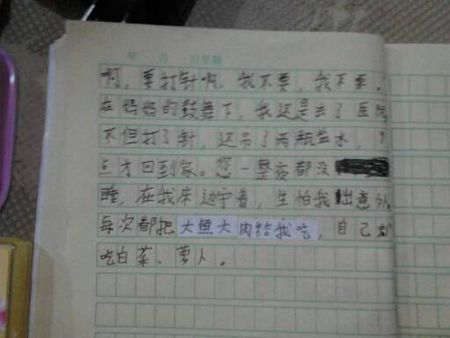 年 月 日星期
啊，要打针呀，我不要，我不要，
在妈妈的鼓舞下，我还是去了医院
不但打了针，还吊了两瓶盐水，
点才回到家。您一整夜都没
睡，在我床边守着，生怕我出意外
每次都把大鱼大肉给我吃，自己却
吃白菜、萝卜。